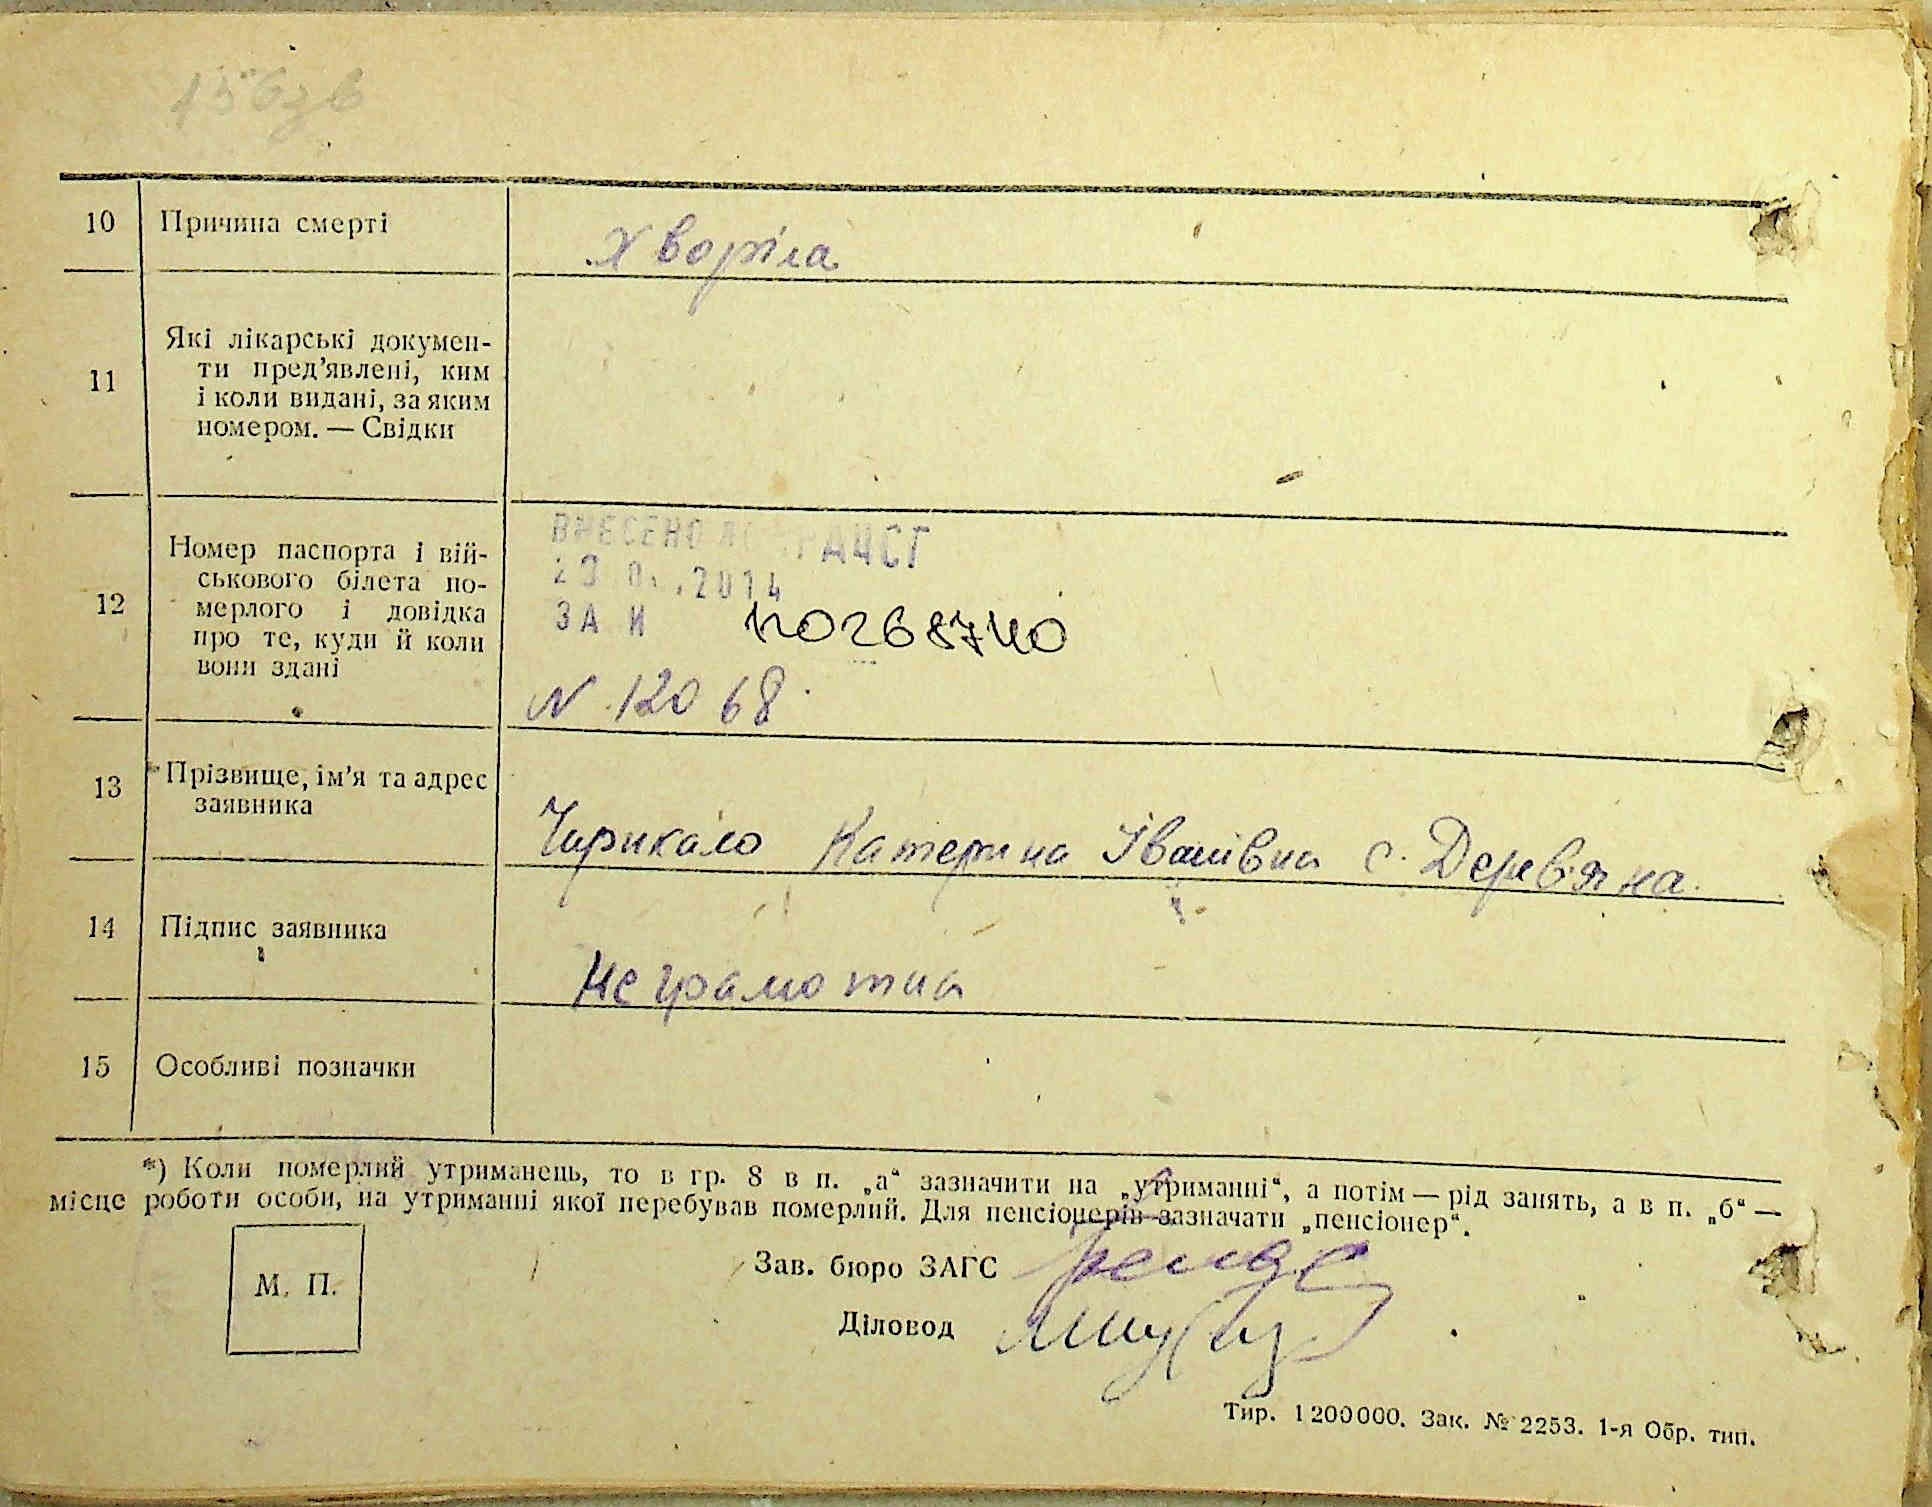 10 Причина смерті
хворіла
11 Які лікарські докумен-
ти пред’явлені, ким
і коли видані, за яким
номером. — Свідки
12 Номер паспорта і вій-
ськового білета по-
мерлого і довідка
про те, куди й коли
вони здані
ВНЕСЕНО ДО ДРАЦСГ
2014
ЗА N
N 12068
13 Прізвище, ім’я та адрес
заявника
Чирикало Катерина Іванівна с. Дерев'яна.
14 Підпис заявника
Неграмотна
15 Особливі позначки
*) Коли померлий утриманець, то в гр. 8 в п. „а“ зазначити на „утриманні“, а потім — рід занять, а в п. „б“ —
місце роботи особи, на утриманні якої перебував померлий. Для пенсіонерів зазначати „пенсіонер“.
М. П.
Зав. бюро ЗАГС
Діловод
Тир. 1200000. Зак. № 2253. 1-я Обр. тип.